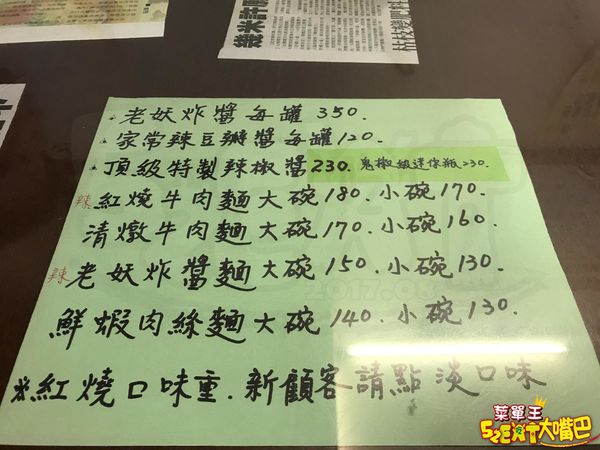 幾米許
枯枝變肥料
老妖炸醬每罐 350.
家常辣豆瓣醬每罐120.
頂級特製辣椒醬230. 鬼椒級迷你瓶230.
辣 紅燒牛肉麵大碗180. 小碗170.
清燉牛肉麵大碗170. 小碗160.
辣 老妖炸醬麵大碗150. 小碗130.
鮮蝦肉絲麵大碗140. 小碗130.
※紅燒口味重. 新顧客請點淡口味
菜單王
大嘴巴